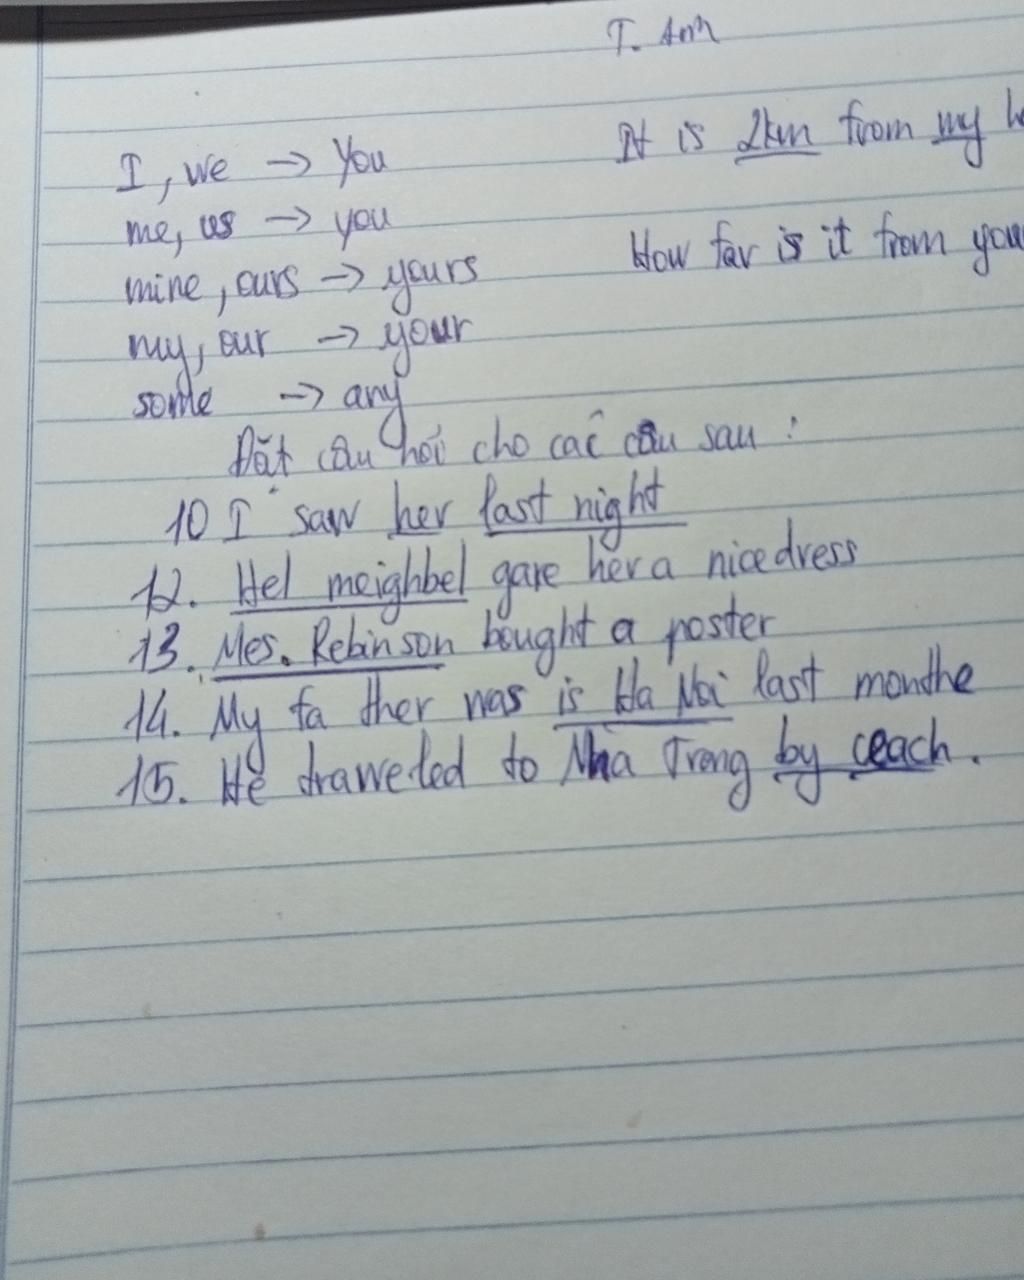 T. Anh
I, we -> You
me, us -> you
mine, ours -> yours
my, our -> your
some -> any
It is 2km from my
How far is it from you
Đặt câu hỏi cho các câu sau :
10 I saw her last night
12. Hel meighbel gave her a nice dress
13. Mes. Rebinson bought a poster
14. My fa ther was is Ha Noi last monthe
15. He traweled to Nha Treng by ceach.